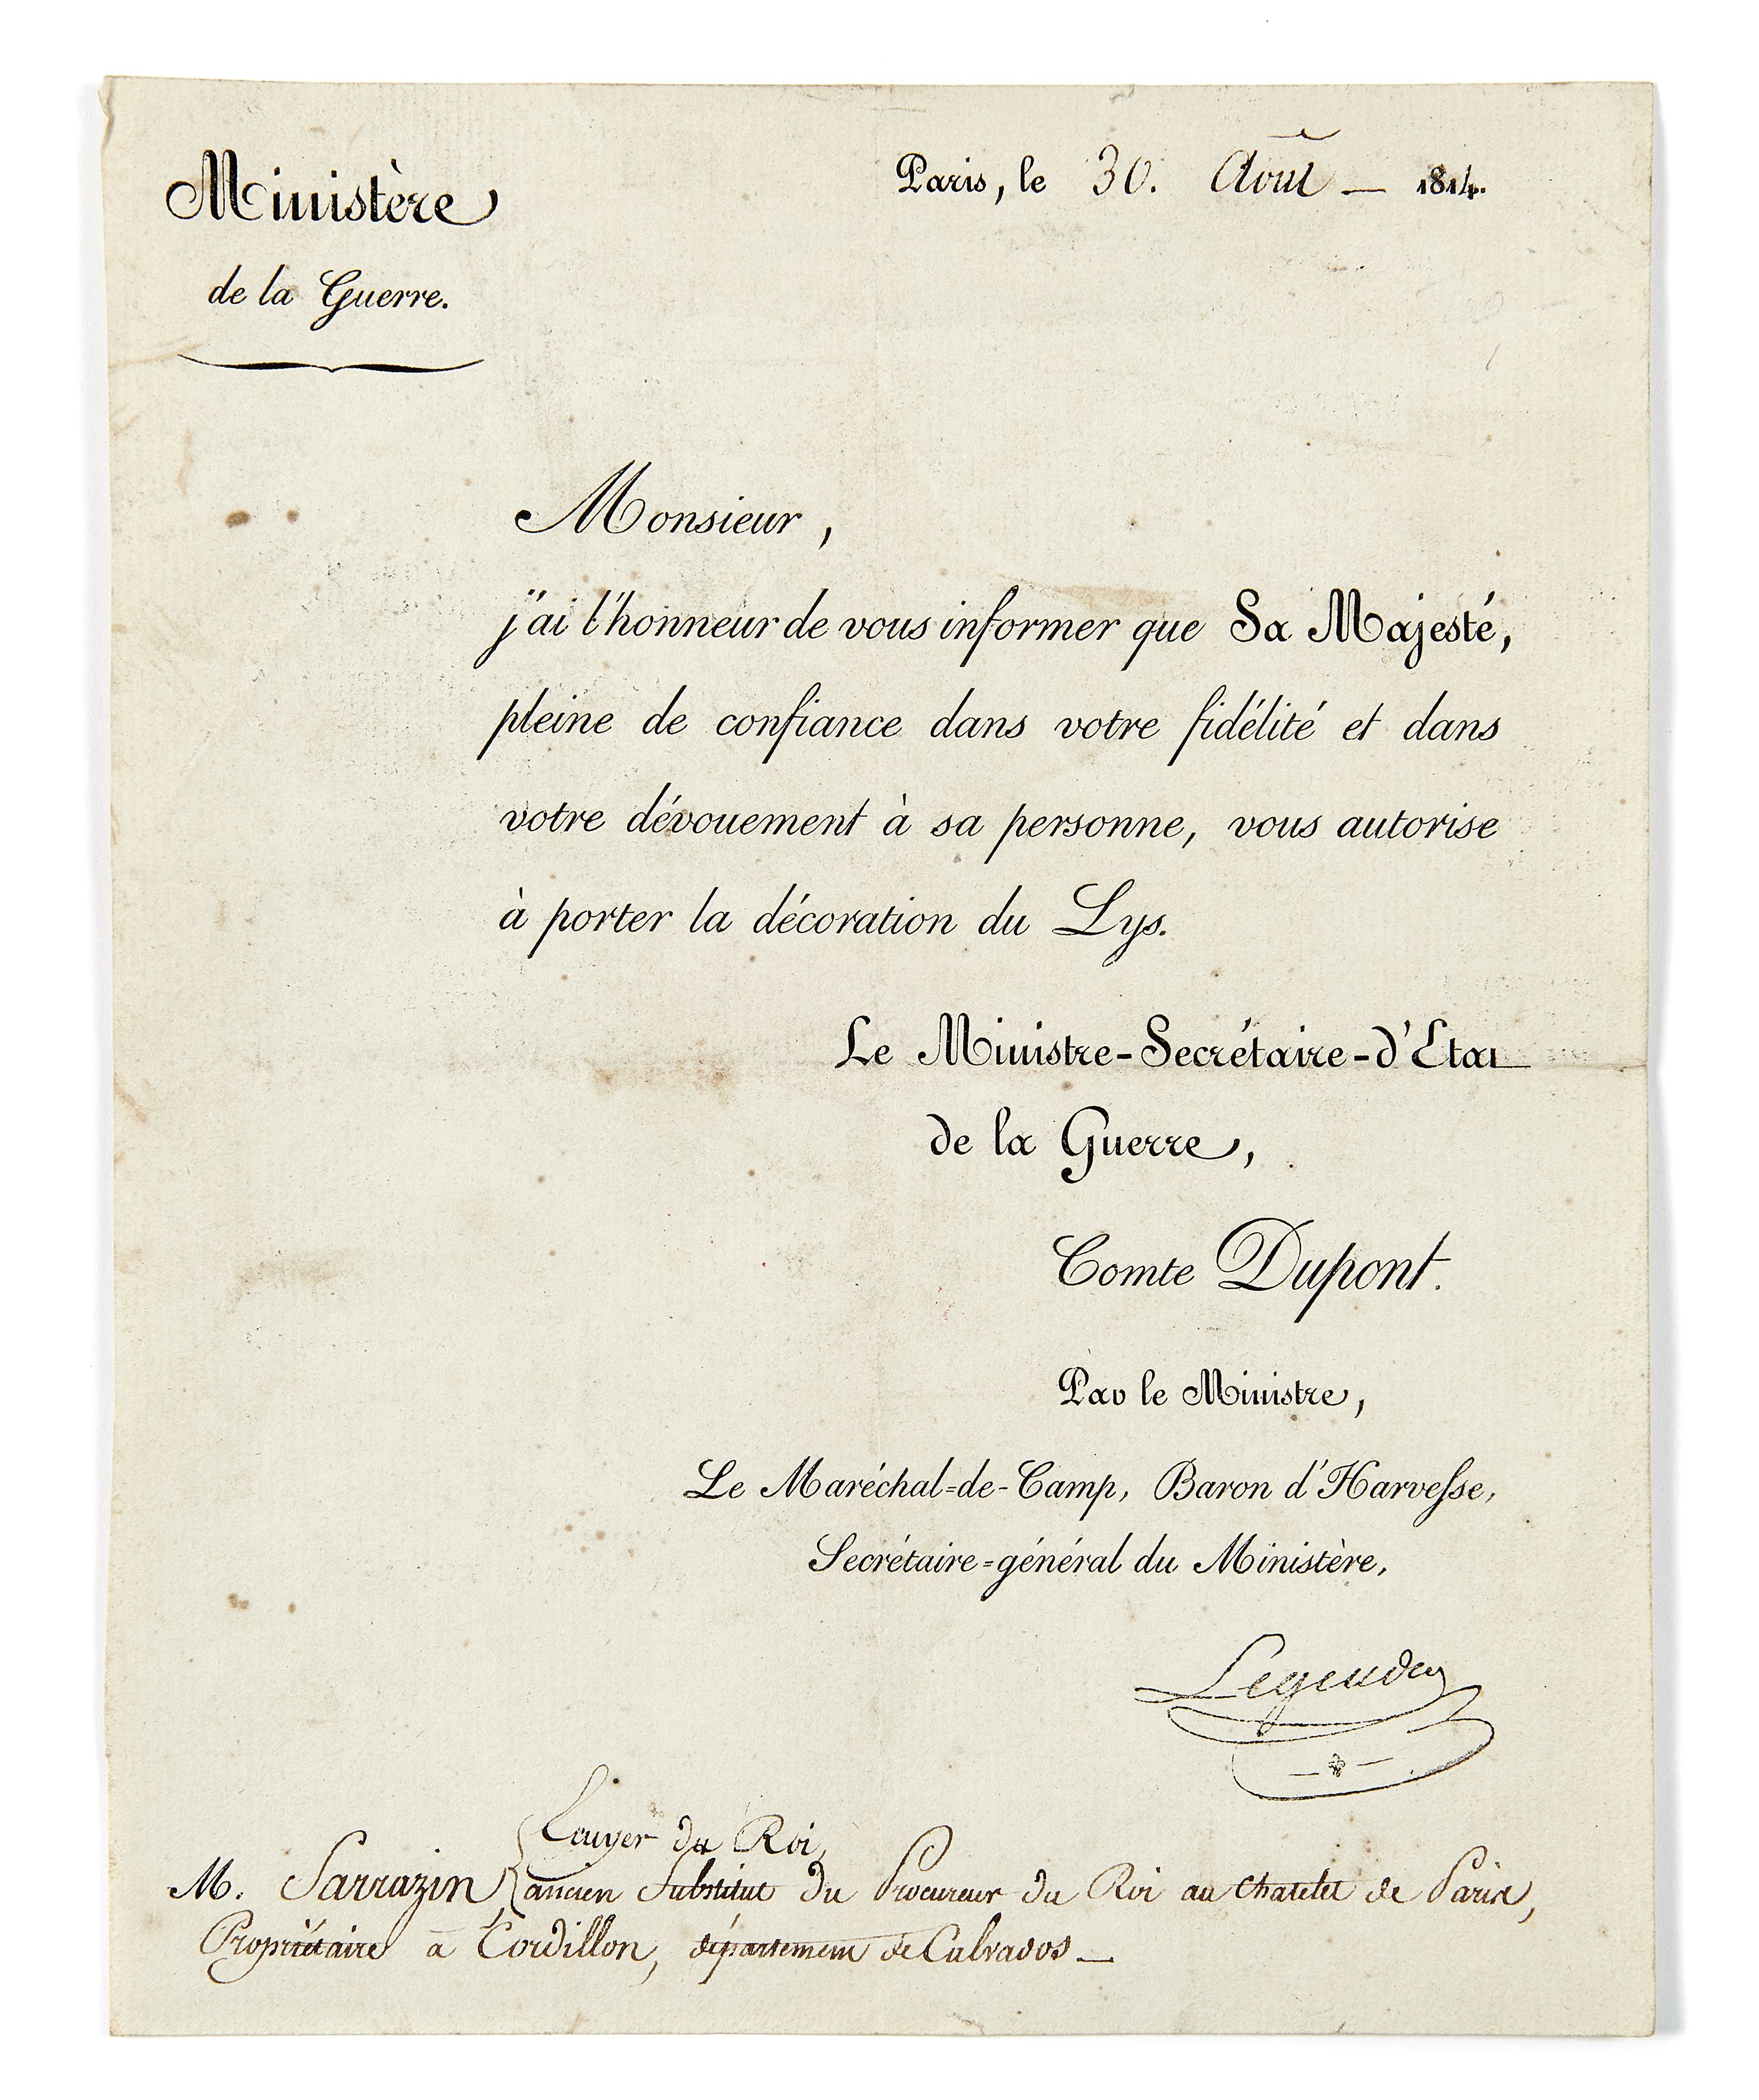 Ministère
de la Guerre.
Paris, le 30. Août — 1814.
Monsieur,
j'ai l'honneur de vous informer que Sa Majesté,
pleine de confiance dans votre fidélité et dans
votre dévouement à sa personne, vous autorise
à porter la décoration du Lys.
Le Ministre-Secrétaire-d'Etat
de la Guerre,
Comte Dupont.
Par le Ministre,
Le Maréchal-de-Camp, Baron d'Harvesse,
Secrétaire-général du Ministère,
Legendre
Ecuyer du Roi,
M. Sarrazin, ancien Substitut du Procureur du Roi au Chatelet de Paris,
Propriétaire à Cordillon, département de Calvados —